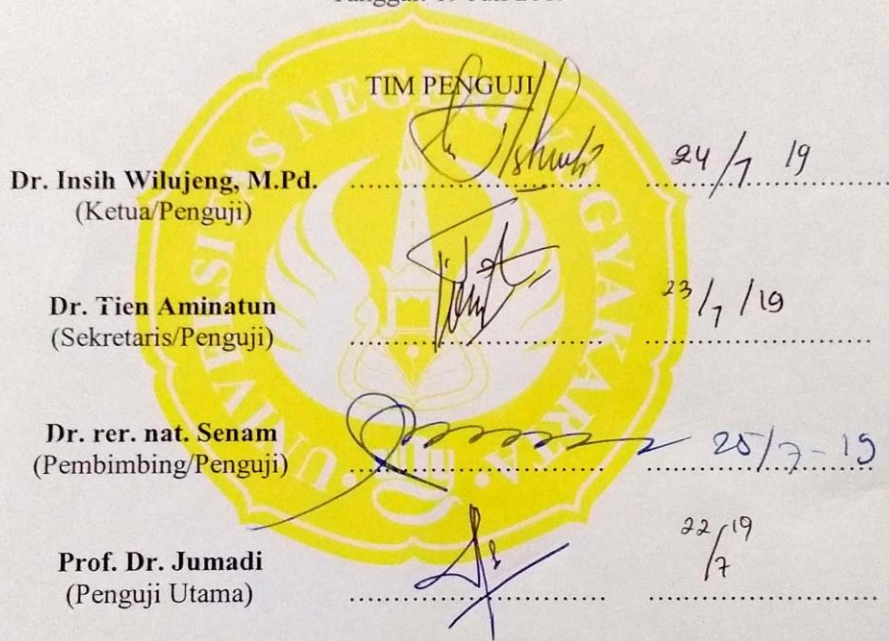 TIM PENGUJI
UNIVERSITAS NEGERI YOGYAKARTA
Dr. Insih Wilujeng, M.Pd.
(Ketua/Penguji)
24/7 19
Dr. Tien Aminatun
(Sekretaris/Penguji)
23/7/19
Dr. rer. nat. Senam
(Pembimbing/Penguji)
25/7-19
Prof. Dr. Jumadi
(Penguji Utama)
22/7 19